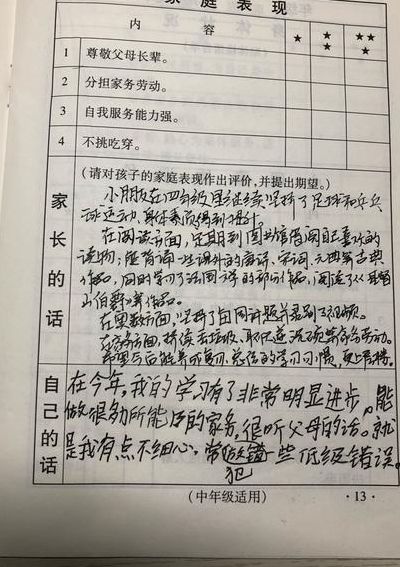 家庭表现
内 容 ★ ★★ ★★★
1 尊敬父母长辈。
2 分担家务劳动。
3 自我服务能力强。
4 不挑吃穿。
家长的话
(请对孩子的家庭表现作出评价,并提出期望。)
小朋友在四年级里继续坚持了足球和乒乓
球运动,身体素质得到提升。
在阅读方面,定期到图书馆借阅自己喜欢的
读物;能背诵一些课外的唐诗、宋词、元曲等古典
作品,同时学习了法国 的部分作品,阅读了《基督
山伯爵》等作品。
在奥数方面,坚持了日周讲题并录制了视频。
在家务方面,扔垃圾、取快递、洗碗等家务劳动。
希望 养成复习、 的学习习惯,更上一层楼。
自己的话
在今年,我的学习有了非常明显进步。能
做很多所能及的家务,很听父母的话。就
是我有点不细心。常 犯一些低级错误。
(中年级适用)
·13·